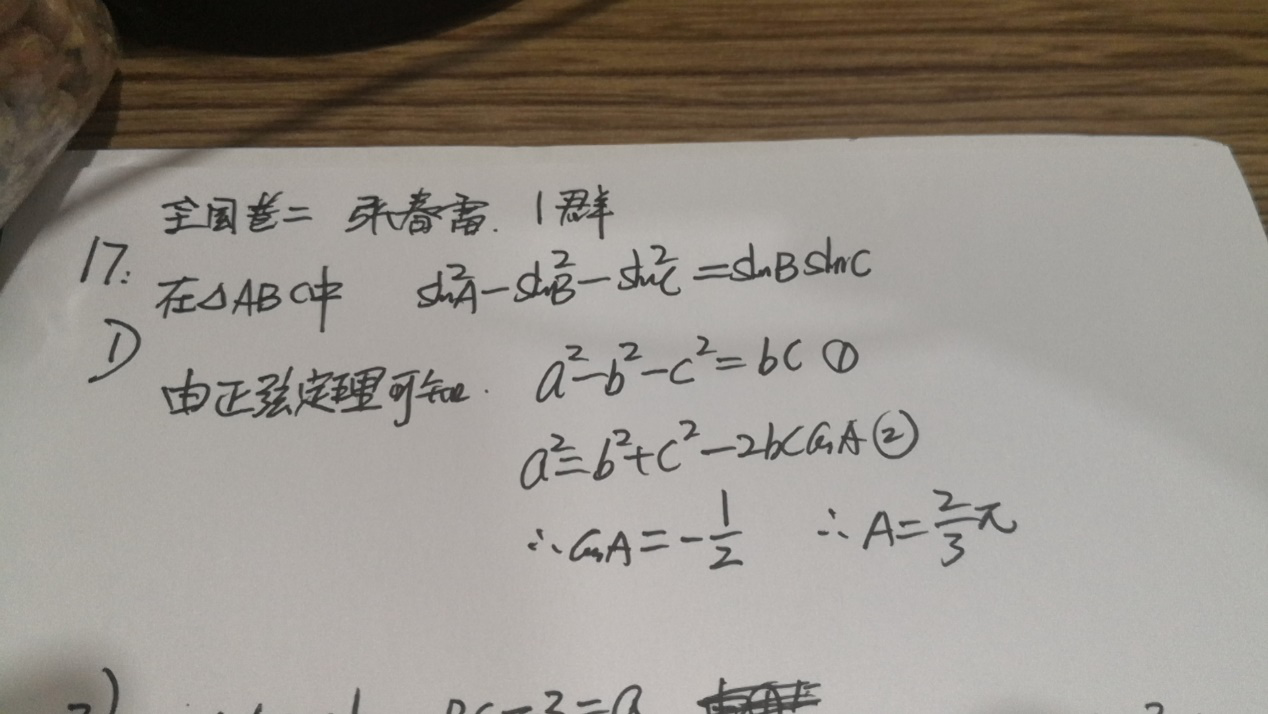 全国卷二 张春雷. 1群
17:
在△ABC中 sin²A-sin²B-sin²C=sinBsinC
1)
由正弦定理可知. a²-b²-c²=bc ①
a²=b²+c²-2bccosA ②
∴cosA=-1/2 ∴A=2/3π
BC=3=a